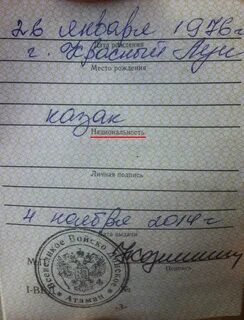 26 января 1976 г
Дата рождения
г. Красный Луч
Место рождения
казак
Национальность
Личная подпись
4 ноября 2014 г
Дата выдачи
Подпись
Всевеликое Войско Донское
Атаман